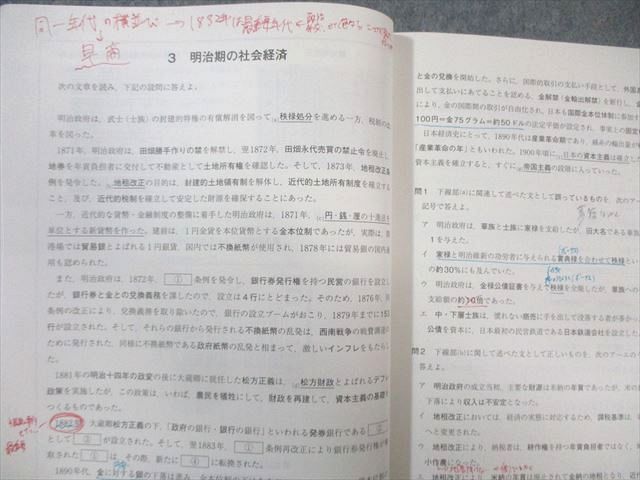 同一年代の横並び → 1882年は最重要年代
早商
3 明治期の社会経済
次の文章を読み、下記の設問に答えよ。
明治政府は、武士(士族)の封建的特権の有償解消を図って(a)秩禄処分を進める一方、税制の改
革を図った。
1871年、明治政府は、田畑勝手作りの禁を解禁し、翌1872年、田畑永代売買の禁止令を廃止し、
地券を年貢負担者に交付して不動産として土地所有権を確認した。そして、1873年、地租改正条
例を発令した。(b)地租改正の目的は、封建的土地領有制を解体し、近代的土地所有制度を確立する
こと、及び、近代的税制を確立して安定した財源を確保することにあった。
一方、近代的な貨幣・金融制度の整備に着手した明治政府は、1871年、(c)円・銭・厘の十進法を
単位とする新貨幣を作った。建前は、1円金貨を本位貨幣とする金本位制であったが、実際は、開
港場では貿易銀とよばれる1円銀貨、国内では不換紙幣が使用され、1878年には貿易銀の国内通
用も認められた。
また、明治政府は、1872年、①条例を発令し、銀行券発行権を持つ民営の銀行を設立し
たが、銀行券と金との兌換義務を課したので、設立は4行にとどまった。そのため、1876年、同
条例の改正により、兌換義務を取り除いたので、銀行の設立ブームがおこり、1879年までに153
行が設立された。そして、それらの銀行から発行される不換紙幣の乱発は、西南戦争の戦費調達の
ために発行された、同様に不換紙幣である政府紙幣の乱発と相まって、激しいインフレをもたらし
た。
1881年の明治十四年の政変の後に大蔵卿に就任した松方正義は、(d)松方財政とよばれるデフレ
政策を実施したが、この政策は、いわば、農民を犠牲にして、財政を再建して、資本主義の基礎を
つくるものであった。
1882年、大蔵卿松方正義の下、「政府の銀行・銀行の銀行」といわれる発券銀行である②
として③が設立された。そして、翌1883年、①条例再改正により銀行券発行権が奪
取された①は、その際、新たに④に転換された。
1890年代、金に対する銀の下落は進み、
と金の兌換を開始した。さらに、国際的取引の支払い手段として、外国為
出して支払いにあてることを認める、金解禁(金輸出解禁)を断行し、
により、金の国際間の取引が自由化され、日本も国際金本位制に参加す
100円=金75グラム=約50ドルの法定平価が設定され、事実上の固定
日本経済史にとって、1890年代は産業革命期であり、綿糸の輸出量が輸
「産業革命の年」ともいわれた。1900年頃に、日本の資本主義は確立した
資本主義を確立すると、すぐに帝国主義の段階に入っていった。
問1 下線部(a)に関連して述べた文として誤っているものを、次のア
記号で答えよ。
ア 明治政府は、華族と士族に家禄を支給したが、旧大名である華族
1を与えた。
イ 家禄と明治維新の功労者に与えられる賞典禄を合わせて秩禄とい
の約30%にも及んでいた。
ウ 明治政府は、金禄公債証書を与えて秩禄を全廃したが、華族への
支給額の約10倍であった。
エ 中・下層士族は、慣れない商売に手を出して没落する者が多かっ
公債を資本に、日本最初の民営鉄道である日本鉄道会社を設立した
問2 下線部(b)に関して述べた文として正しいものを、次のア～エの
ア 明治政府の成立当初、主要な財源は米納の年貢であったが、米の
下落により収入は不安定となった。
イ 地租改正においては、経済の実態に対応するため、課税基準は、
へと変更された。
ウ 地租改正により、納税者は、耕作権を持つ年貢負担者ではなく、地
小作農になった。